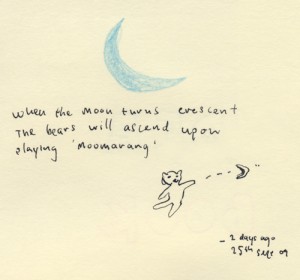 when the moon turns crescent
The bears will ascend upon
playing 'Moomarang'
- 2 days ago
25th Sept 09